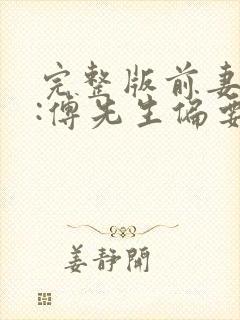 完整版前妻
:傅先生偏要
姜静開